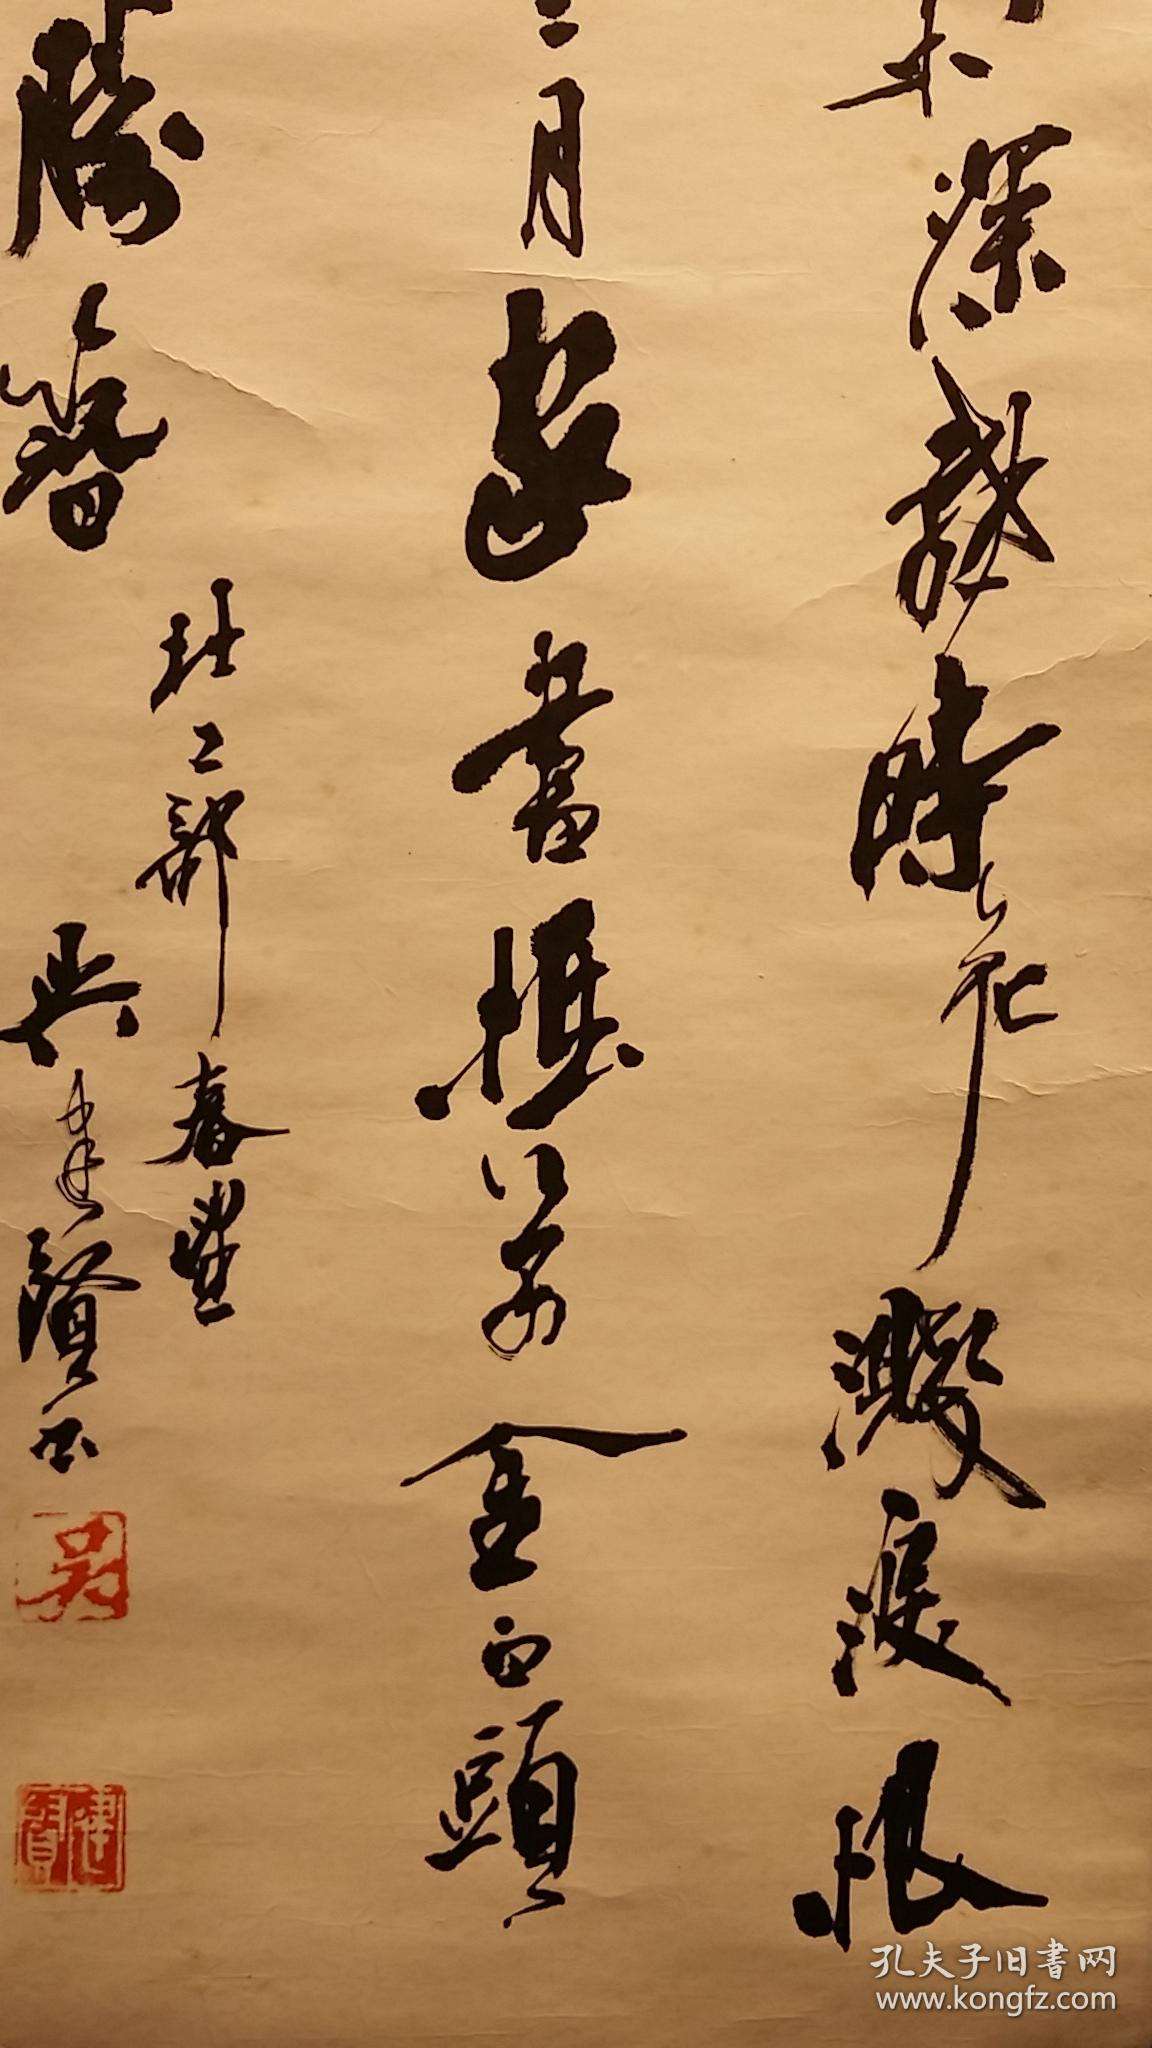 木深感時花濺淚恨
三月家書抵萬金白頭
勝簪
杜工部春望
吳建賢書
吳
建賢
孔夫子旧書网
www.kongfz.com